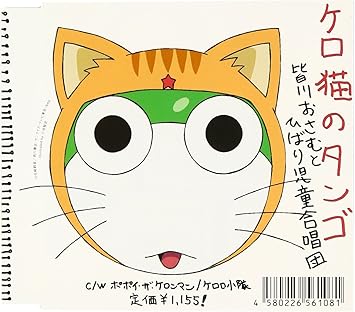 ケロ猫のタンゴ
皆川おさむと
ひばり児童合唱団
C/W ポポイ・ザ・ケロンマン/ケロロ小隊
定価¥1,155!
4 580226 561081